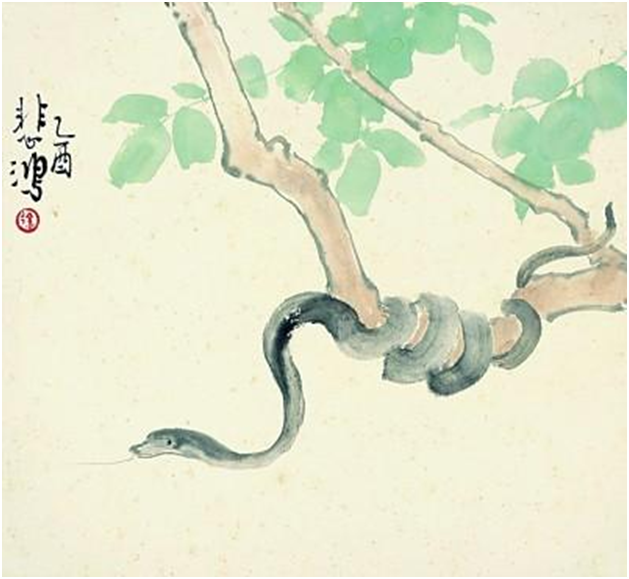 乙酉
悲鴻
徐